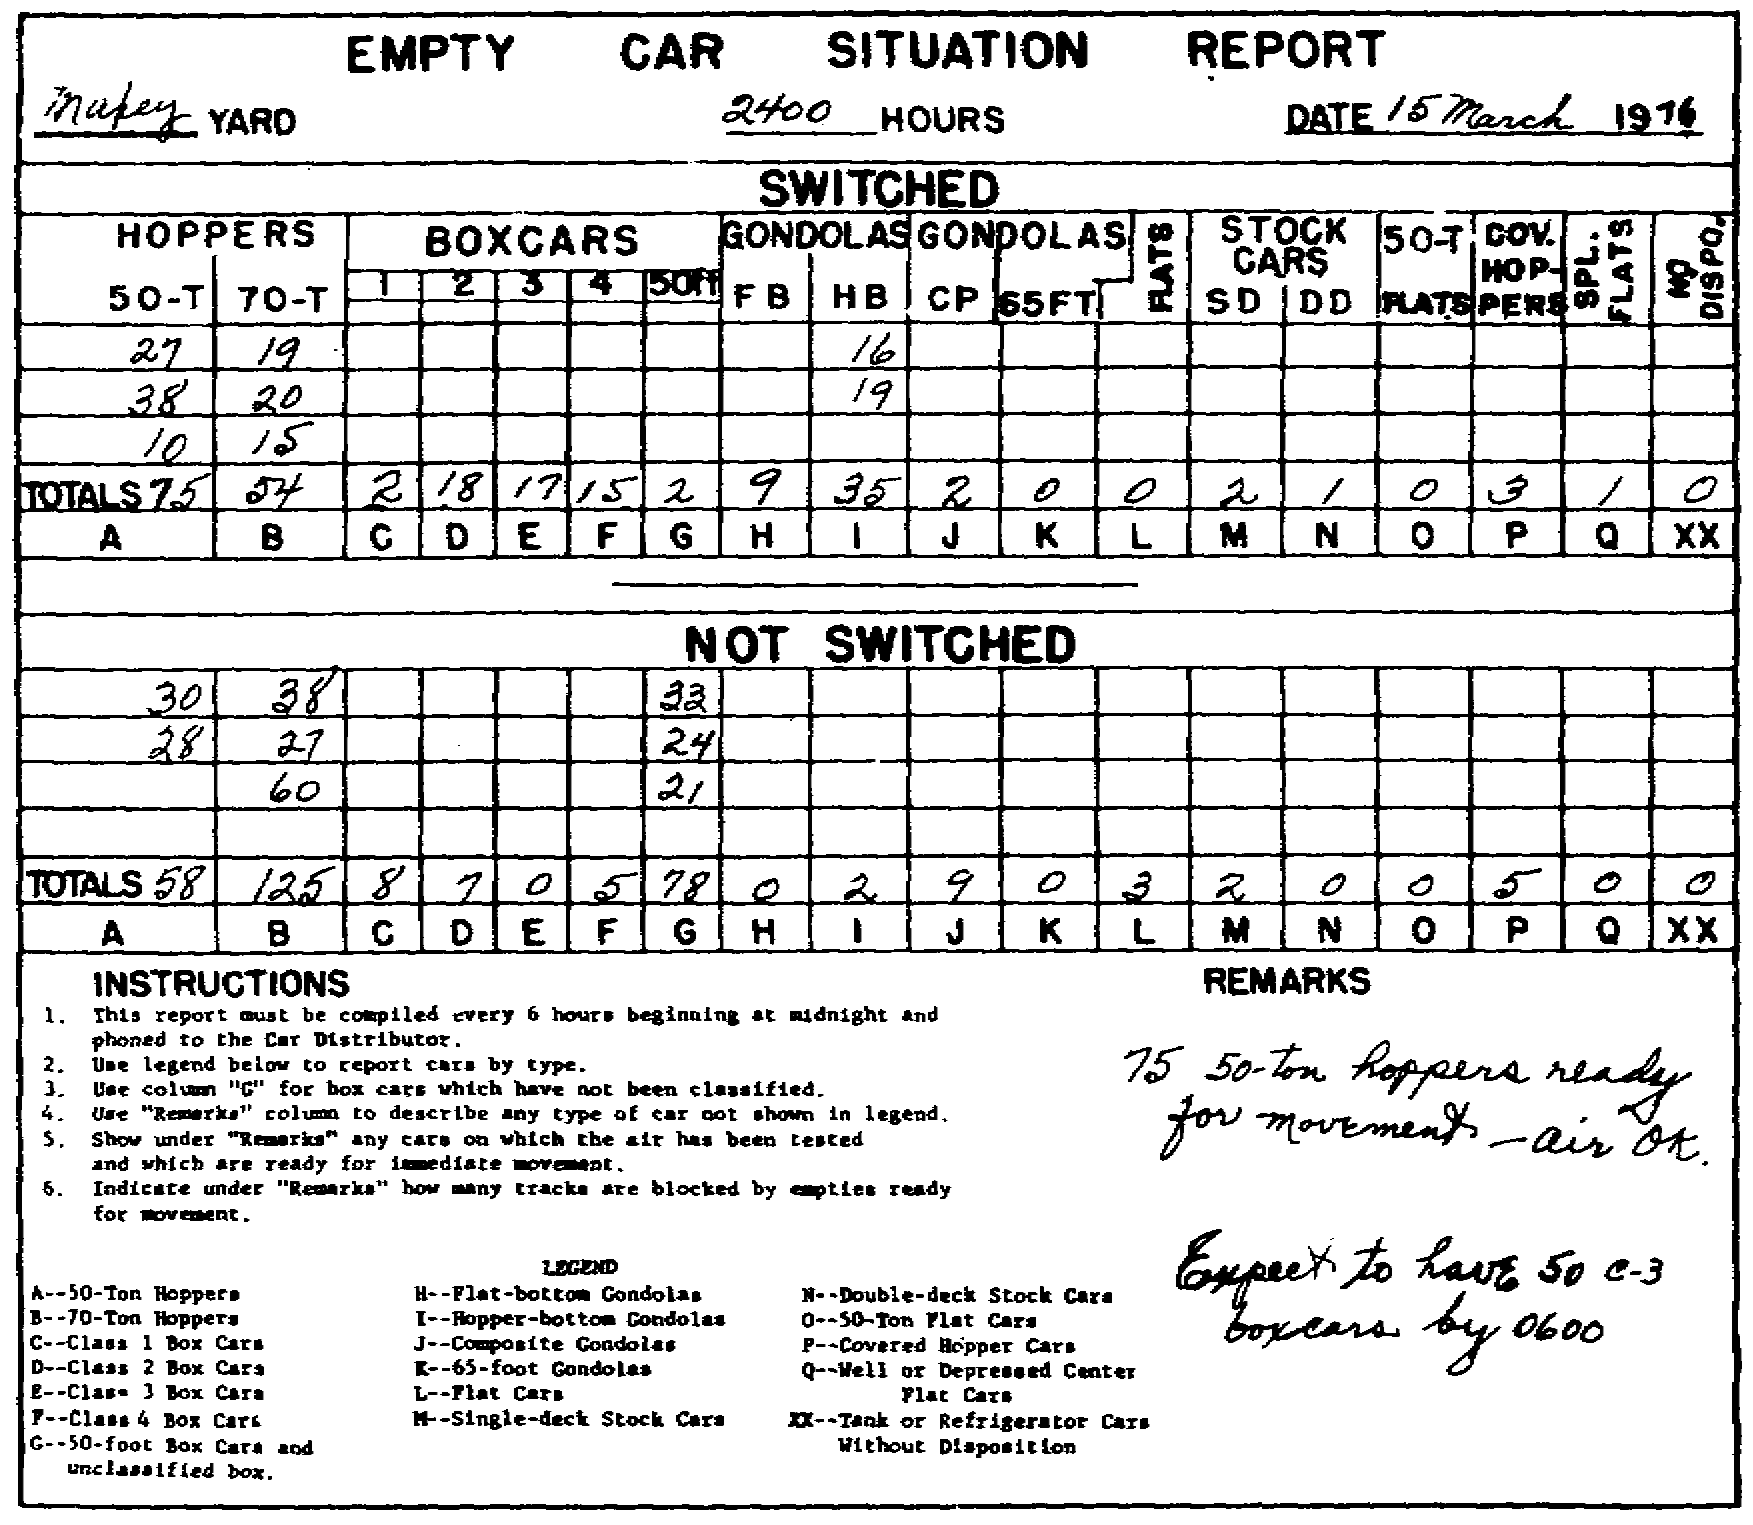 EMPTY CAR SITUATION REPORT
Mapey YARD 2400 HOURS DATE 15 March 1976
SWITCHED
HOPPERS BOXCARS GONDOLAS GONDOLAS FLATS STOCK CARS 50-T FLATS COV. HOP-PERS SPL. FLATS NO DISPO.
50-T 70-T 1 2 3 4 50ft FB HB CP 65FT SD DD
27 19 16
38 20 19
10 15
TOTALS 75 54 2 18 17 15 2 9 35 2 0 0 2 1 0 3 1 0
A B C D E F G H I J K L M N O P Q XX
NOT SWITCHED
30 38 33
28 27 24
60 21
TOTALS 58 125 8 7 0 5 78 0 2 9 0 3 2 0 0 5 0 0
A B C D E F G H I J K L M N O P Q XX
INSTRUCTIONS
1. This report must be compiled every 6 hours beginning at midnight and
phoned to the Car Distributor.
2. Use legend below to report cars by type.
3. Use column "G" for box cars which have not been classified.
4. Use "Remarks" column to describe any type of car not shown in legend.
5. Show under "Remarks" any cars on which the air has been tested
and which are ready for immediate movement.
6. Indicate under "Remarks" how many tracks are blocked by empties ready
for movement.
REMARKS
75 50-ton hoppers ready
for movement - air OK.
Expect to have 50 C-3
boxcars by 0600
LEGEND
A--50-Ton Hoppers
B--70-Ton Hoppers
C--Class 1 Box Cars
D--Class 2 Box Cars
E--Class 3 Box Cars
F--Class 4 Box Cars
G--50-foot Box Cars and
unclassified box.
H--Flat-bottom Gondolas
I--Hopper-bottom Gondolas
J--Composite Gondolas
K--65-foot Gondolas
L--Flat Cars
M--Single-deck Stock Cars
N--Double-deck Stock Cars
O--50-Ton Flat Cars
P--Covered Hopper Cars
Q--Well or Depressed Center
Flat Cars
XX--Tank or Refrigerator Cars
Without Disposition